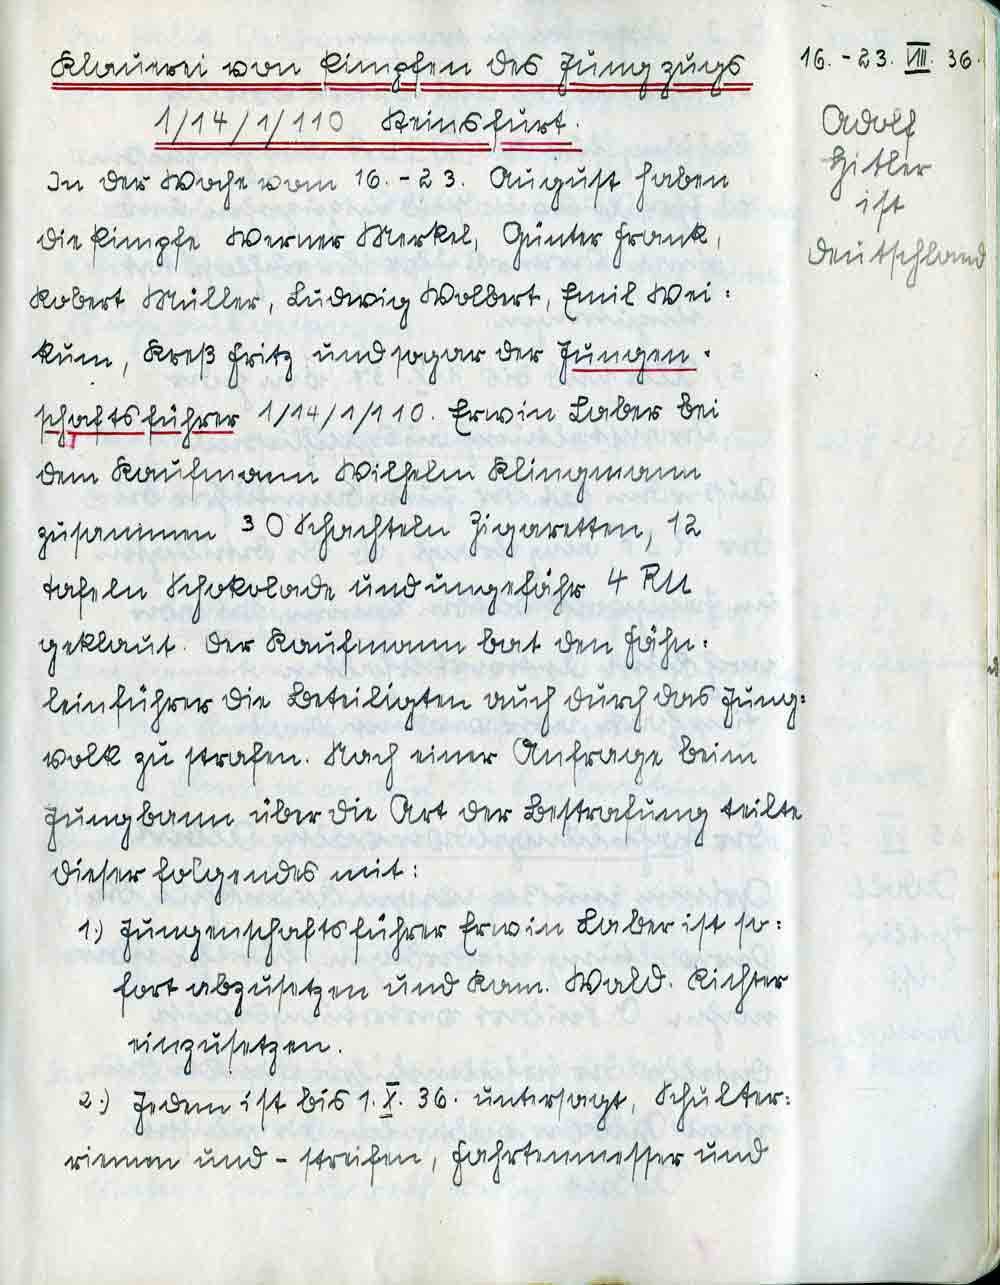 Klauerei von Pimpfen des Jungzugs
1/14/1/110 Reinsfurt.
In der Woche vom 16. - 23. August haben
die Pimpfe Werner Merkel, Günter Frank,
Robert Müller, Ludwig Wolbert, Emil Wei:
kum, Kreß Fritz und sogar der Jungen:
schaftsführer 1/14/1/110. Erwin Laber bei
dem Kaufmann Wilhelm Klingmann
zusammen 30 Schachteln Zigaretten, 12
Tafeln Schokolade und ungefähr 4 RM
geklaut. Der Kaufmann bat den Fähn:
leinführer die Beteiligten auch durch das Jung:
volk zu strafen. Nach einer Anfrage beim
Jungbann über die Art der Bestrafung teilte
dieser folgendes mit:
1.) Jungenschaftsführer Erwin Laber ist so:
fort abzusetzen und Kam. Wald. Richter
einzusetzen.
2.) Jedem ist bis 1. X. 36. untersagt, Schulter:
riemen und - streifen, Fahrtenmesser und
16. - 23. VIII. 36.
Adolf
Hitler
ist
Deutschland